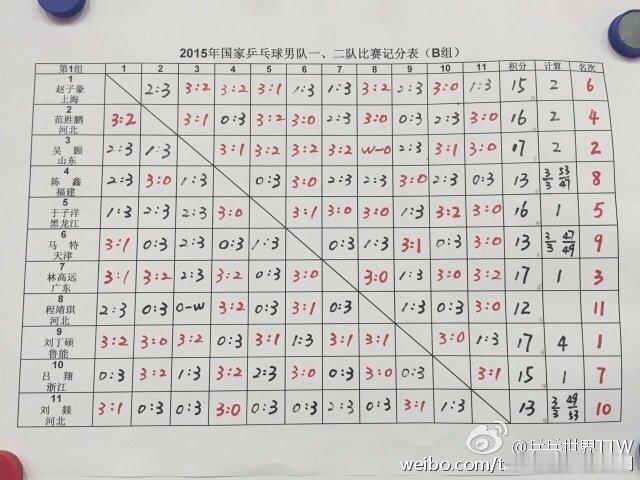 2015年国家乒乓球男队一、二队比赛记分表（B组）
第1组 1 2 3 4 5 6 7 8 9 10 11 积分 计算 名次
1
赵子豪 2:3 3:2 3:2 3:1 1:3 1:3 3:2 2:3 3:0 1:3 15 2 6
上海
2
范胜鹏 3:2 3:1 0:3 3:2 3:0 2:3 3:0 0:3 2:3 3:0 16 2 4
河北
3
吴颢 2:3 1:3 3:1 3:2 3:2 3:2 W-0 2:3 3:1 3:0 17 2 2
山东
4
陈鑫 2:3 3:0 1:3 0:3 3:0 2:3 2:3 3:0 2:3 0:3 13 3/3 53/47 8
福建
5
于子洋 1:3 2:3 2:3 3:0 3:1 3:0 3:0 1:3 3:2 3:0 16 1 5
黑龙江
6
马特 3:1 0:3 2:3 0:3 1:3 0:3 1:3 3:1 0:3 3:0 13 3/3 47/49 9
天津
7
林高远 3:1 3:2 2:3 3:2 0:3 3:0 3:0 1:3 3:0 3:2 17 1 3
广东
8
程靖琪 2:3 0:3 0-W 3:2 0:3 3:1 0:3 1:3 0:3 3:0 12 11
河北
9
刘丁硕 3:2 3:0 3:2 0:3 3:1 1:3 3:1 3:1 3:0 1:3 17 4 1
鲁能
10
吕翔 0:3 3:2 1:3 3:2 2:3 3:0 0:3 3:0 0:3 3:1 15 1 7
浙江
11
刘燚 3:1 0:3 0:3 3:0 0:3 0:3 2:3 0:3 3:1 1:3 13 3/3 49/53 10
河北
@乒乓世界TTW
weibo.com/t